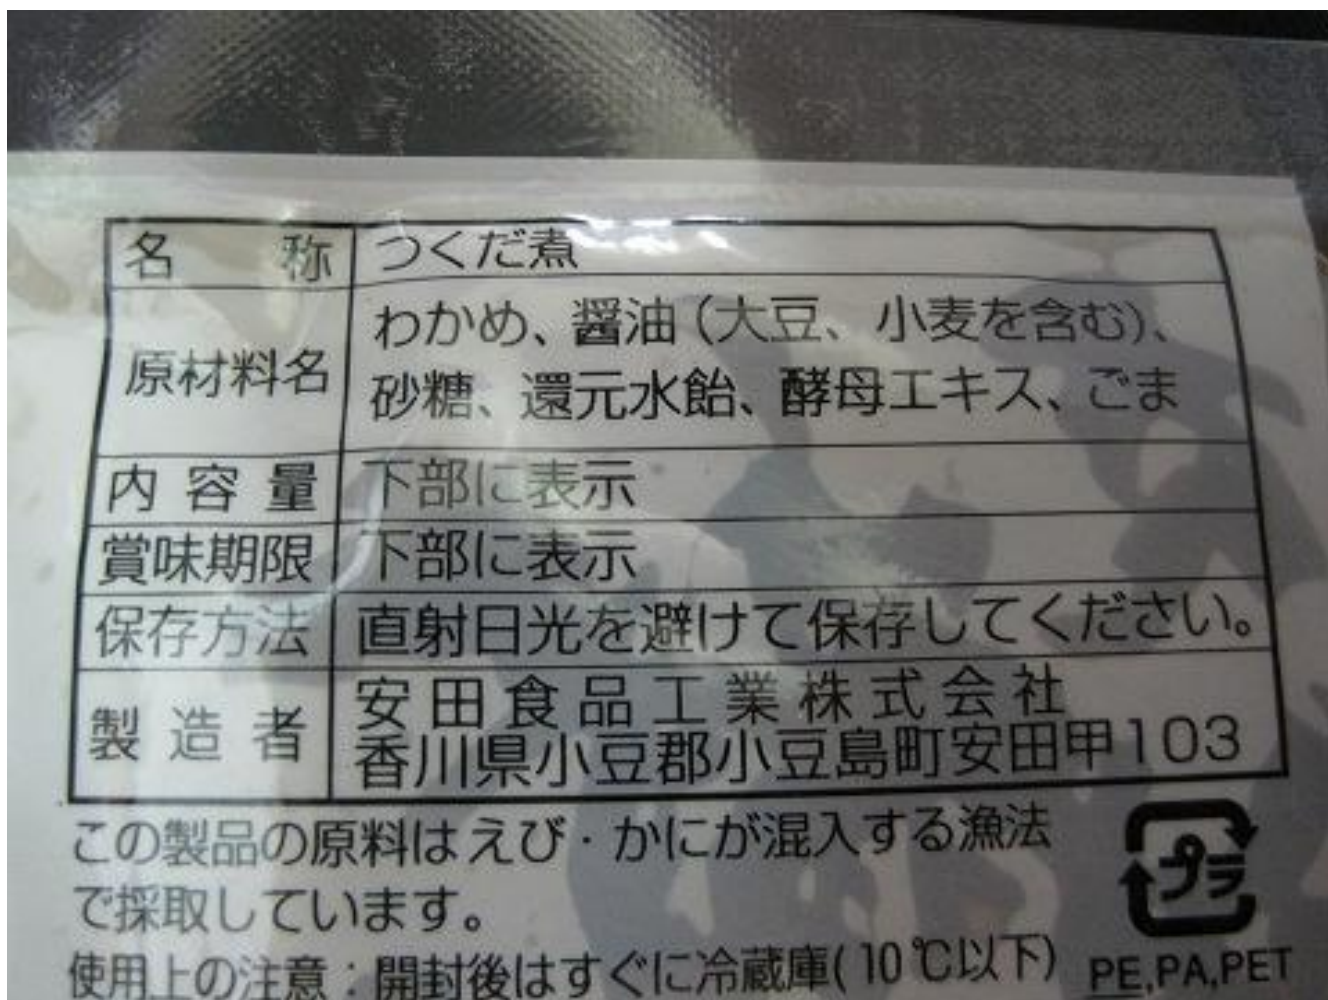 名称 つくだ煮
原材料名 わかめ、醤油（大豆、小麦を含む）、
砂糖、還元水飴、酵母エキス、ごま
内容量 下部に表示
賞味期限 下部に表示
保存方法 直射日光を避けて保存してください。
製造者 安田食品工業株式会社
香川県小豆郡小豆島町安田甲103
この製品の原料はえび・かにが混入する漁法
で採取しています。
プラ
使用上の注意：開封後はすぐに冷蔵庫(10℃以下)
PE,PA,PET